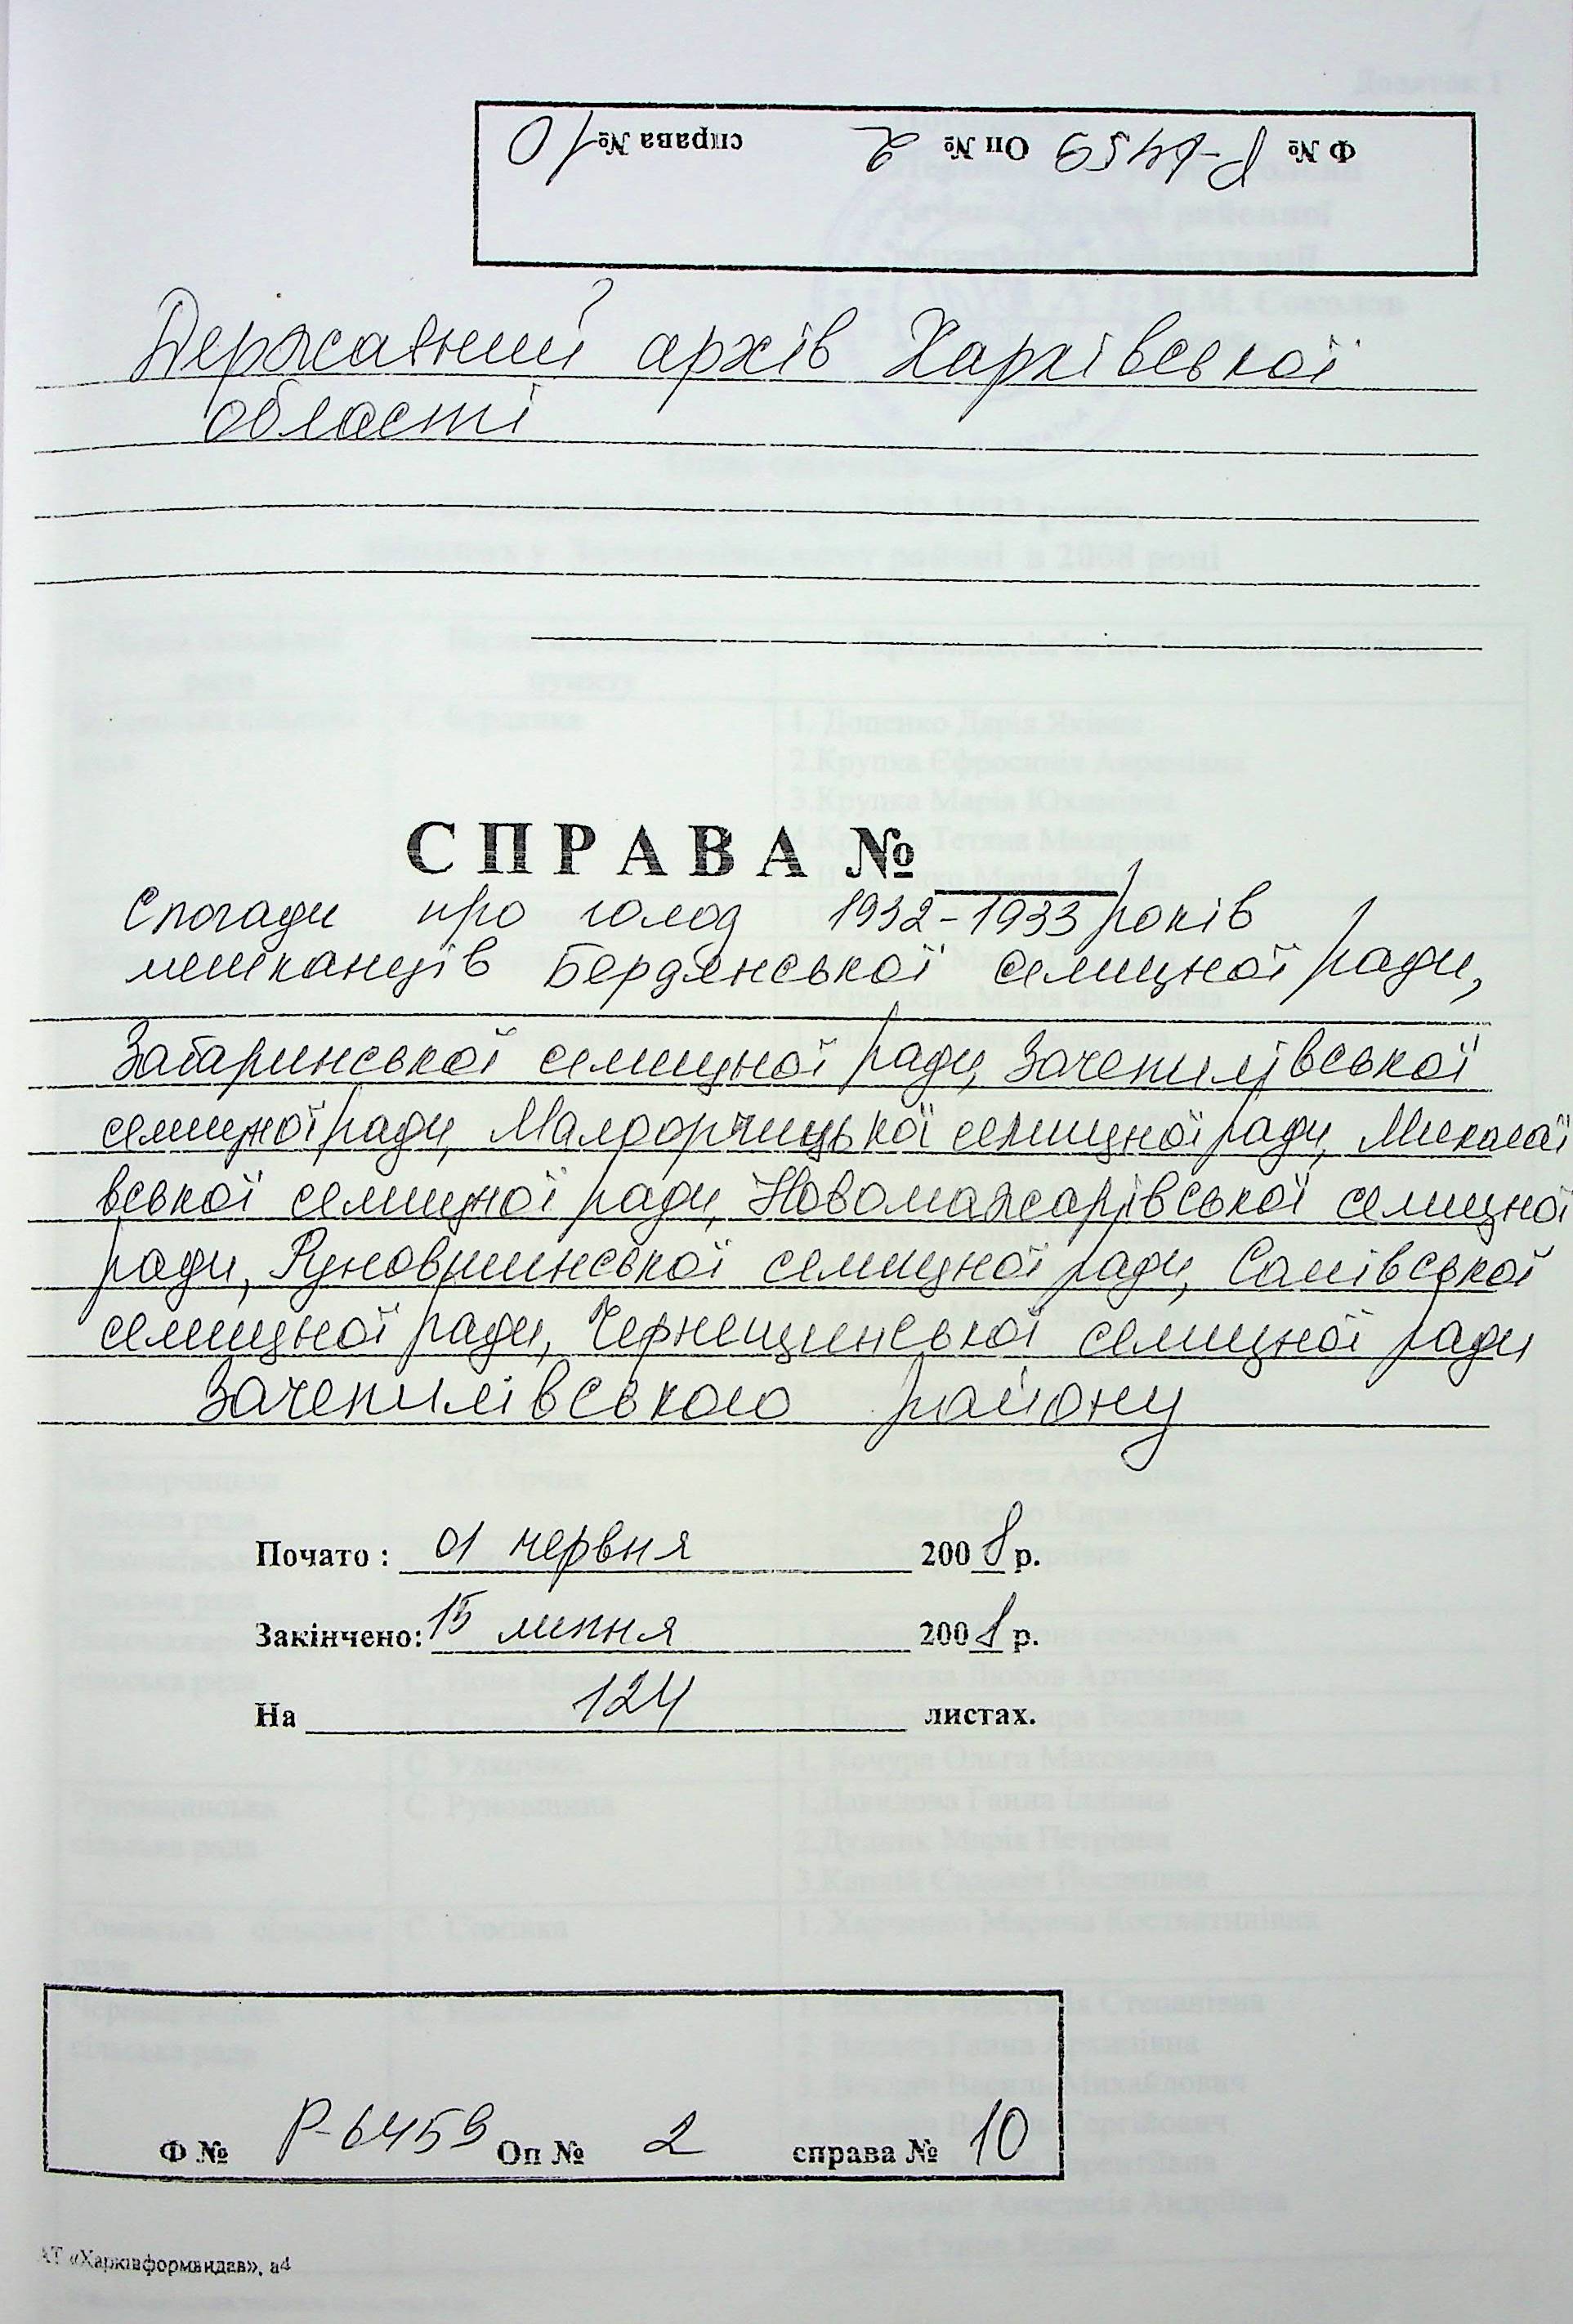 Ф № Р-6459 Оп № 2 справа № 10
Державний архів Харківської
області
СПРАВА №
Спогади про голод 1932-1933 років
мешканців Бердянської селищної ради,
Забаринської селищної ради, Зачепилівської
селищної ради, Малоорчицької селищної ради, Миколаї
вської селищної ради, Новомажарівської селищної
ради, Руновщинської селищної ради, Сомівської
селищної ради, Чернещинської селищної ради
Зачепилівського району
Почато : 01 червня 2008 р.
Закінчено: 15 липня 2008 р.
На 124 листах.
Ф № Р-6459 Оп № 2 справа № 10
АТ «Харківформвидав», а4